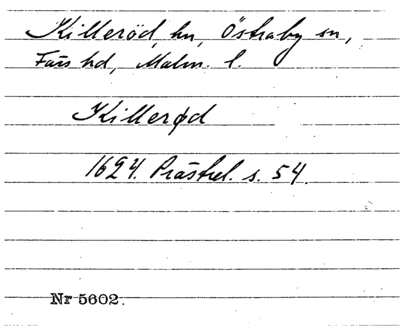 Killeröd, hn, Östraby sn,
Färs hd, Malm. l.
Killerød
1624. Prästrel. s. 54.
Nr 5602.